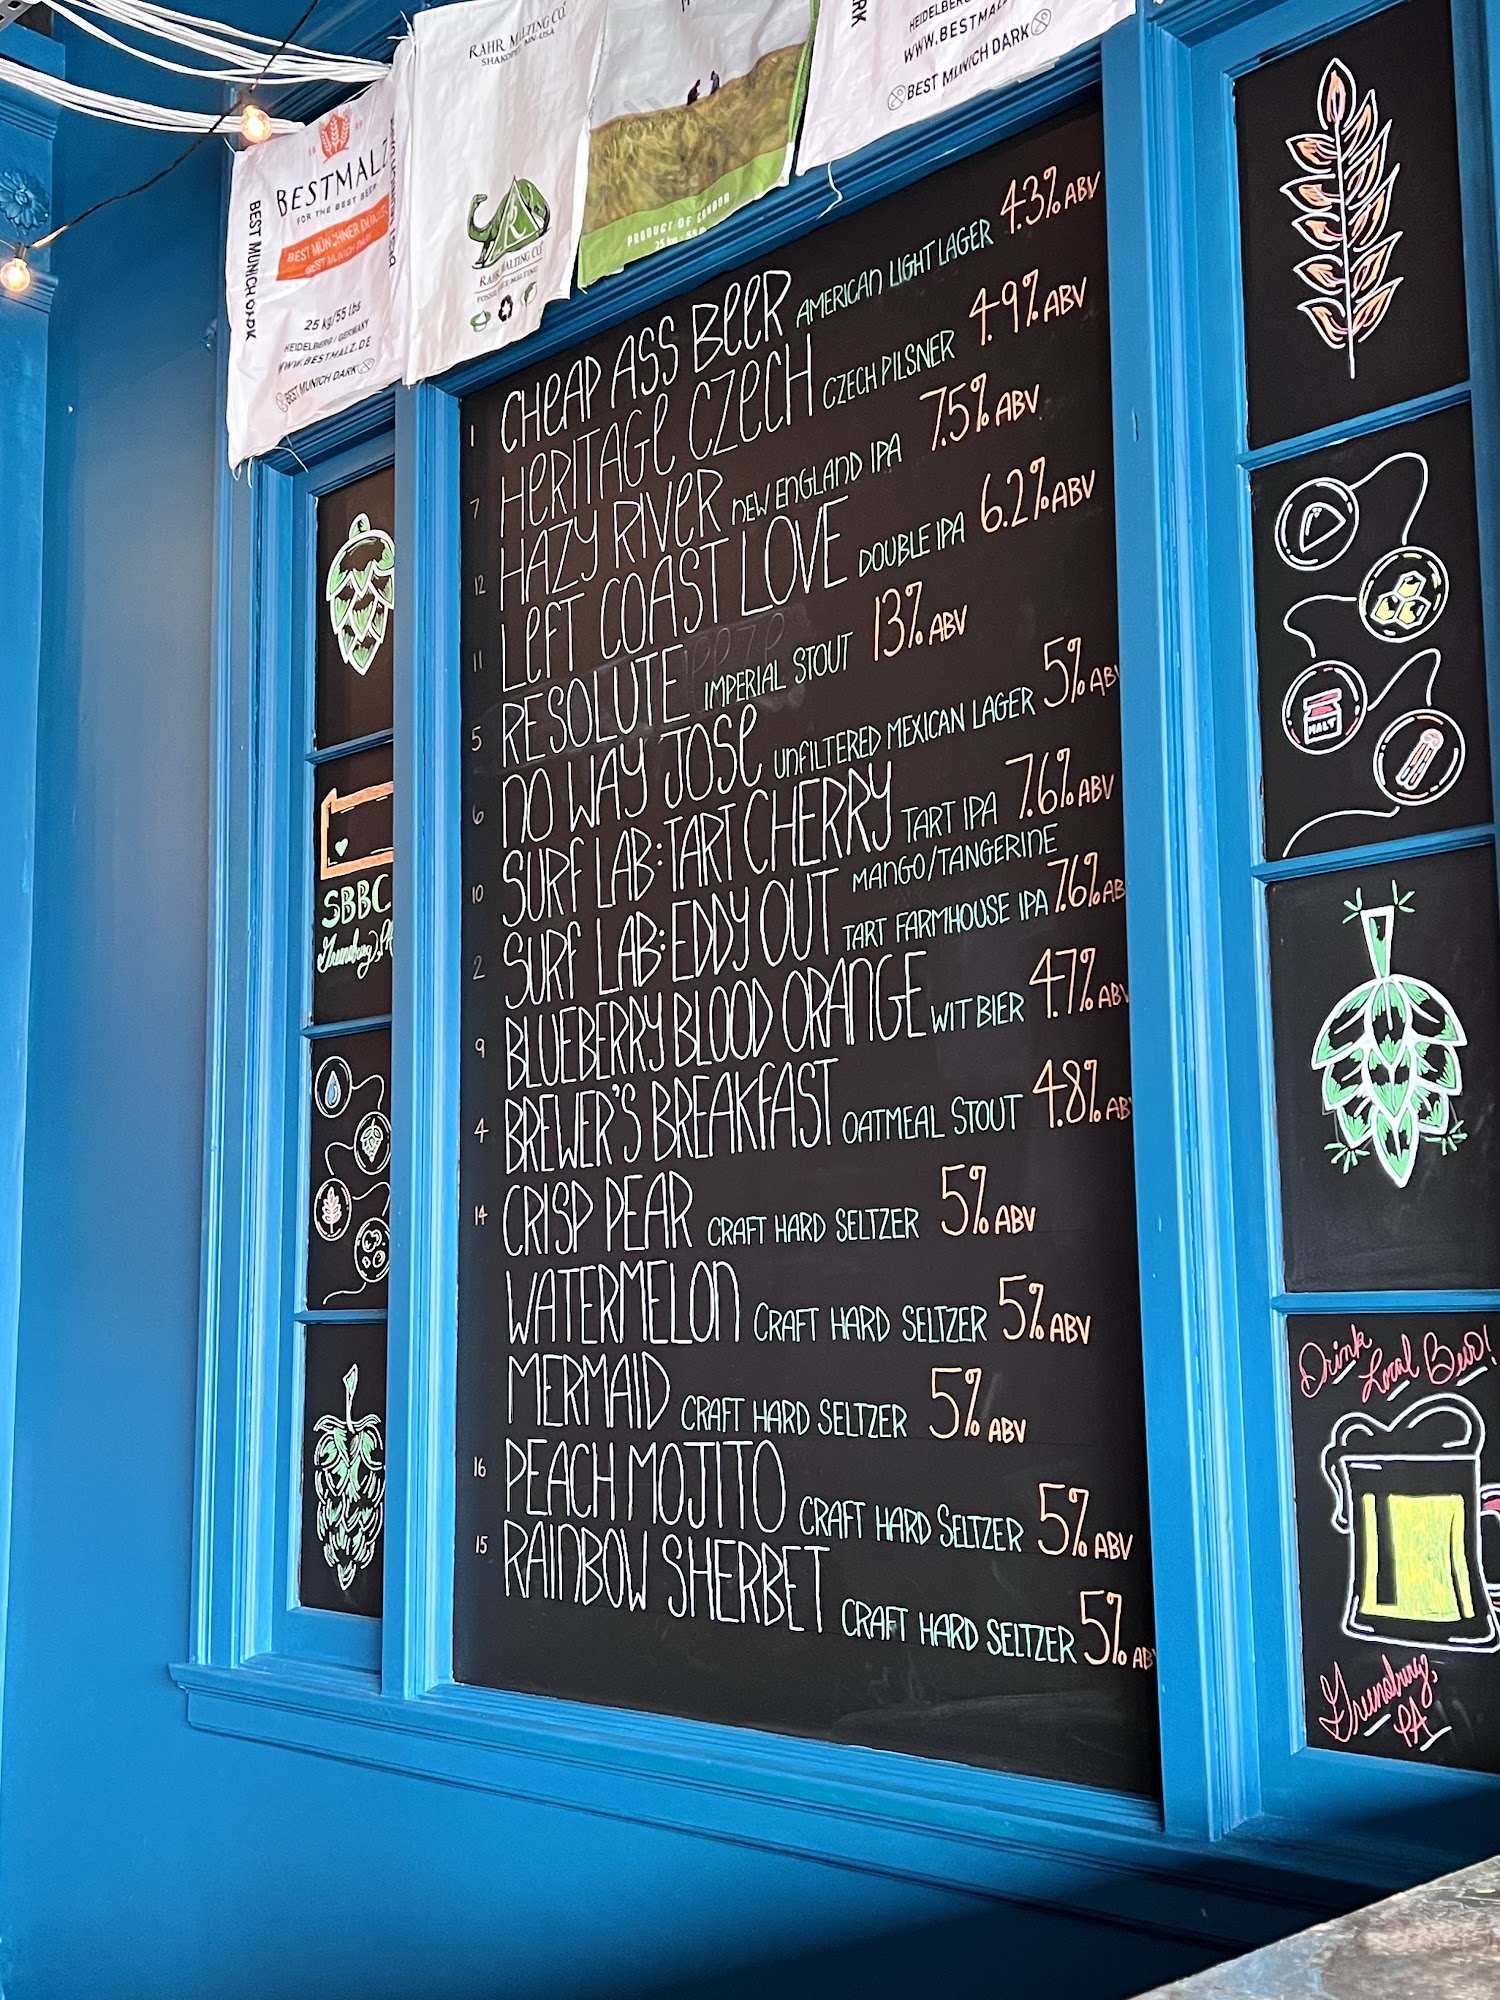 RAHR MALTING CO.
SHAKOPEE, MN - USA
BESTMALZ
FOR THE BEST BEER
BEST MÜNCHNER DUNKEL
BEST MUNICH DARK
BEST MUNICH DARK
25 kg/55 lbs
HEIDELBERG / GERMANY
WWW.BESTMALZ.DE
BEST MUNICH DARK
R
RAHR MALTING CO.
PRODUCT OF CANADA
HEIDELBERG
WWW.BESTMALZ
BEST MUNICH DARK
1 CHEAP ASS BEER AMERICAN LIGHT LAGER 4.3% ABV
7 HERITAGE CZECH CZECH PILSNER 4.9% ABV
12 HAZY RIVER NEW ENGLAND IPA 7.5% ABV
11 LEFT COAST LOVE DOUBLE IPA 6.2% ABV
5 RESOLUTE IMPERIAL STOUT 13% ABV
6 NO WAY JOSE UNFILTERED MEXICAN LAGER 5% AB
10 SURF LAB: TART CHERRY TART IPA 7.6% ABV
2 SURF LAB: EDDY OUT MANGO/TANGERINE
TART FARMHOUSE IPA 7.6% AB
9 BLUEBERRY BLOOD ORANGE WIT BIER 4.7% ABV
4 BREWER'S BREAKFAST OATMEAL STOUT 4.8% AB
14 CRISP PEAR CRAFT HARD SELTZER 5% ABV
WATERMELON CRAFT HARD SELTZER 5% ABV
MERMAID CRAFT HARD SELTZER 5% ABV
16 PEACH MOJITO CRAFT HARD SELTZER 5% ABV
15 RAINBOW SHERBET CRAFT HARD SELTZER 5% AB
SBBC
Greensburg, PA
MALT
Drink
Local Beer!
Greensburg,
PA